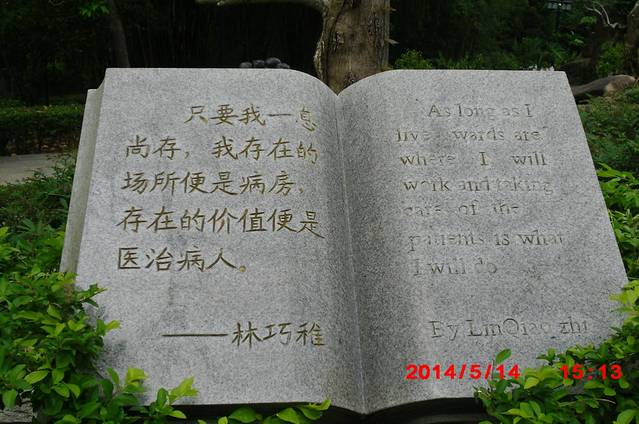 只要我一息
尚存，我存在的
场所便是病房，
存在的价值便是
医治病人。
——林巧稚
As long as I
live wards are
where I will
work and taking
care of the
patients is what
I will do
By LinQiao zhi
2014/5/14 15:13